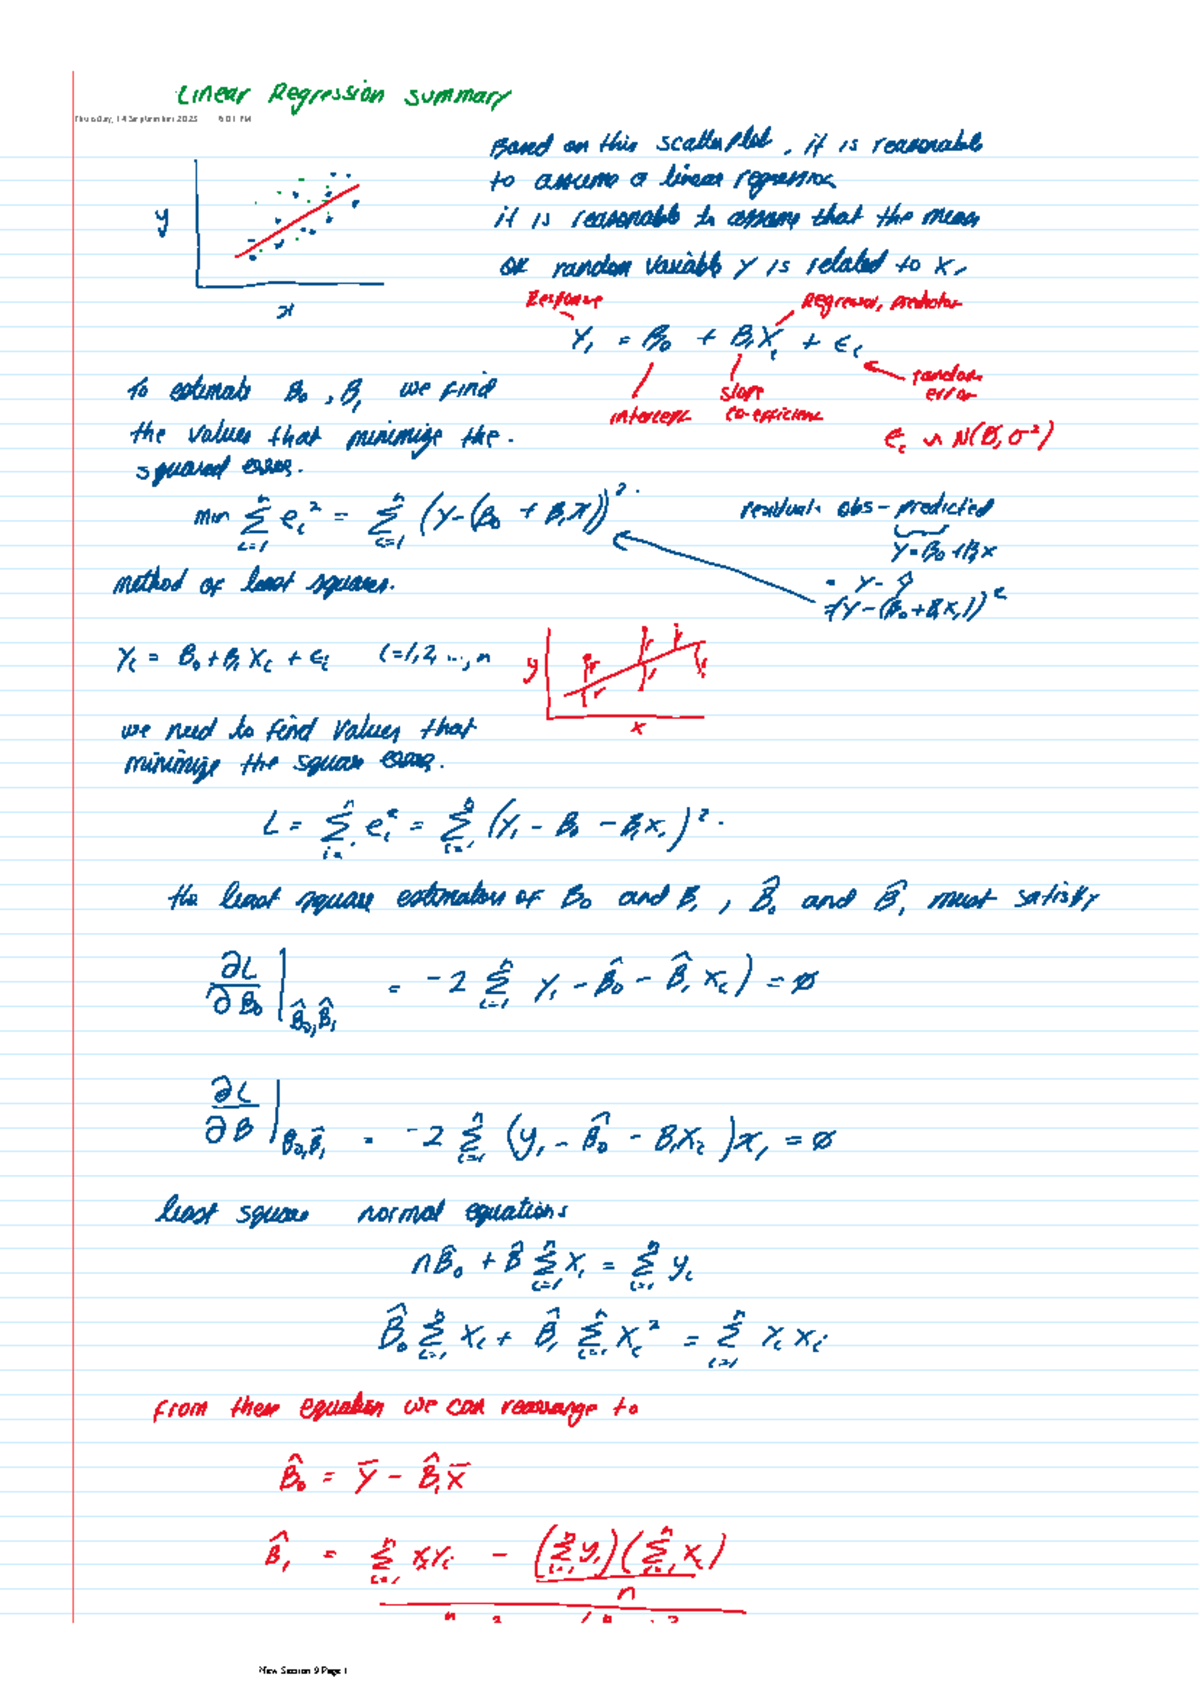 Linear Regression summary
Thursday, 14 September 2023 6:01 PM
Based on this scatterplot, it is reasonable
to assume a linear regression
it is reasonable to assume that the mean
y
OR random variable Y is related to X,
x
Response
Regressor, predictor
Yi = B0 + B1Xi + Ei
random error
intercept
slope co-efficient
ei ~ N(0, σ²)
To estimate B0, B1 we find
the values that minimize the.
squared error.
min Σ(i=1 to n) ei² = Σ(i=1 to n) (Y-(B0 + B1x))².
residual: obs - predicted
Y = B0 + B1x
= Y - ŷ
=(Y-(B0+B1x1))²
method of least squares.
Yi = B0 + B1Xi + Ei i=1,2,...,n
y
x
we need to find values that
minimize the square error.
L = Σ(i=1 to n) ei² = Σ(i=1 to n) (Yi - B0 - B1xi)².
the least square estimators of B0 and B1, B̂0 and B̂1 must satisfy
∂L/∂B0 |B̂0,B̂1 = -2 Σ(i=1 to n) Yi - B̂0 - B̂1xi) = 0
∂L/∂B |B̂0,B̂1 = -2 Σ(i=1 to n) (yi - B̂0 - B1xi)xi = 0
least square normal equations
nB̂0 + B̂ Σ(i=1 to n) xi = Σ(i=1 to n) yi
B̂0 Σ(i=1 to n) xi + B̂1 Σ(i=1 to n) xi² = Σ(i=1 to n) Yi xi
from these equation we can rearrange to
B̂0 = Ȳ - B̂1X̄
B̂1 = Σ(i=1 to n) xiYi - (Σ(i=1 to n) yi)(Σ(i=1 to n) xi)
n
New Section 9 Page 1